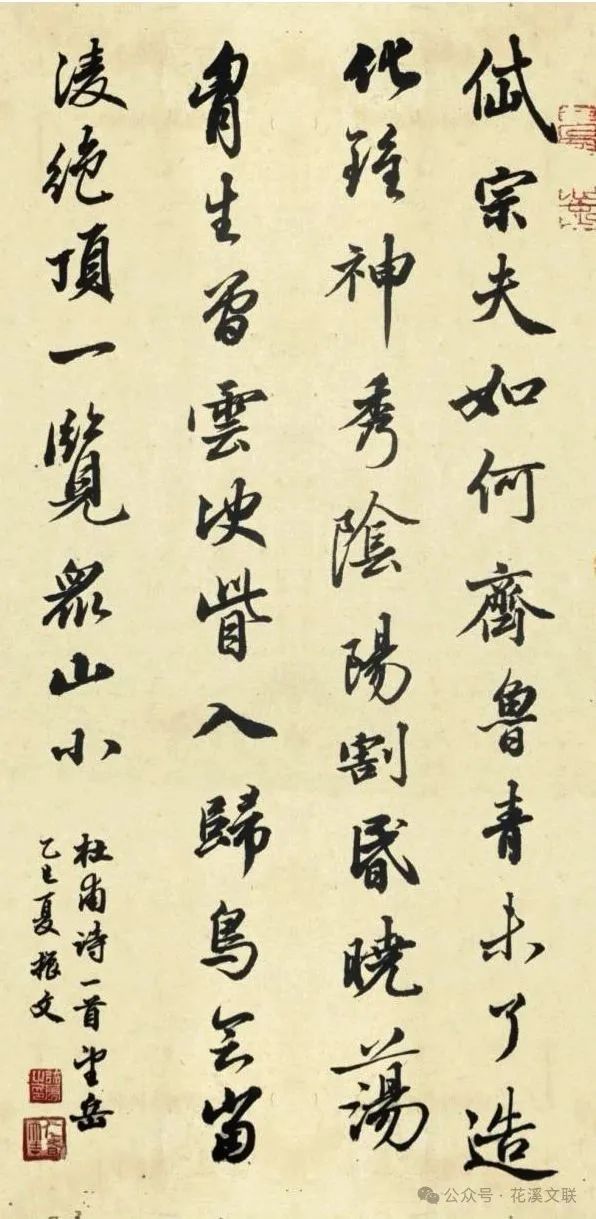 岱宗夫如何齊魯青未了造
化鍾神秀陰陽割昏曉蕩
胷生曾雲决眥入歸鳥会當
凌绝頂一覽眾山小
杜甫诗一首望岳
乙巳夏振文
公众号·花溪文联